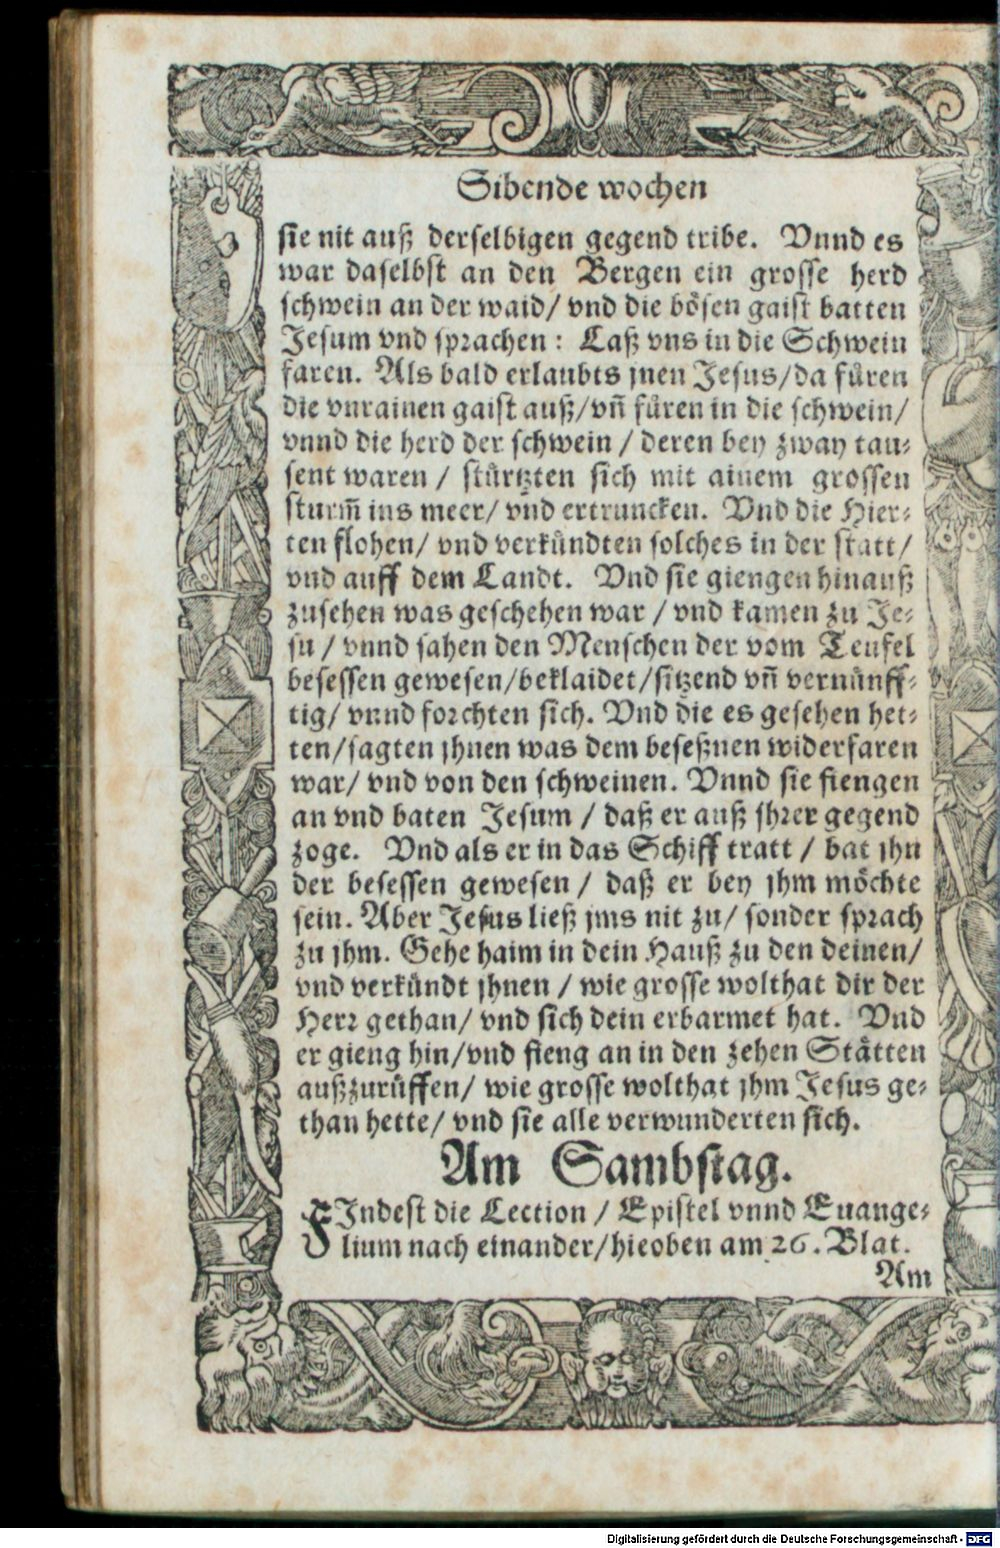 Sibende wochen
sie nit auß derselbigen gegend tribe. Vnnd es
war daselbst an den Bergen ein grosse herd
schwein an der waid/ vnd die bösen gaist batten
Jesum vnd sprachen: Laß vns in die Schwein
faren. Als bald erlaubts jnen Jesus/da fůren
die vnrainen gaist auß/vñ fůren in die schwein/
vnnd die herd der schwein / deren bey zway tau-
sent waren / stürtzten sich mit ainem grossen
sturm̃ ins meer/ vnd ertruncken. Vnd die Hier-
ten flohen/ vnd verkündten solches in der statt/
vnd auff dem Landt. Vnd sie giengen hinauß
zusehen was geschehen war / vnd kamen zu Je-
su / vnnd sahen den Menschen der vom Teufel
besessen gewesen/beklaidet/sitzend vñ vernünff-
tig/ vnnd forchten sich. Vnd die es gesehen het-
ten/sagten jhnen was dem beseßnen widerfaren
war/ vnd von den schweinen. Vnnd sie fiengen
an vnd baten Jesum / daß er auß jhrer gegend
zoge. Vnd als er in das Schiff tratt / bat jhn
der besessen gewesen / daß er bey jhm möchte
sein. Aber Jesus ließ jms nit zu/ sonder sprach
zu jhm. Gehe haim in dein Hauß zu den deinen/
vnd verkündt jhnen / wie grosse wolthat dir der
Herr gethan/ vnd sich dein erbarmet hat. Vnd
er gieng hin/vnd fieng an in den zehen Stätten
außzurüffen/ wie grosse wolthat jhm Jesus ge-
than hette/ vnd sie alle verwunderten sich.
Am Sambstag.
FIndest die Lection / Epistel vnnd Euange-
lium nach einander/hieoben am 26. Blat.
Am
Digitalisierung gefördert durch die Deutsche Forschungsgemeinschaft - DFG